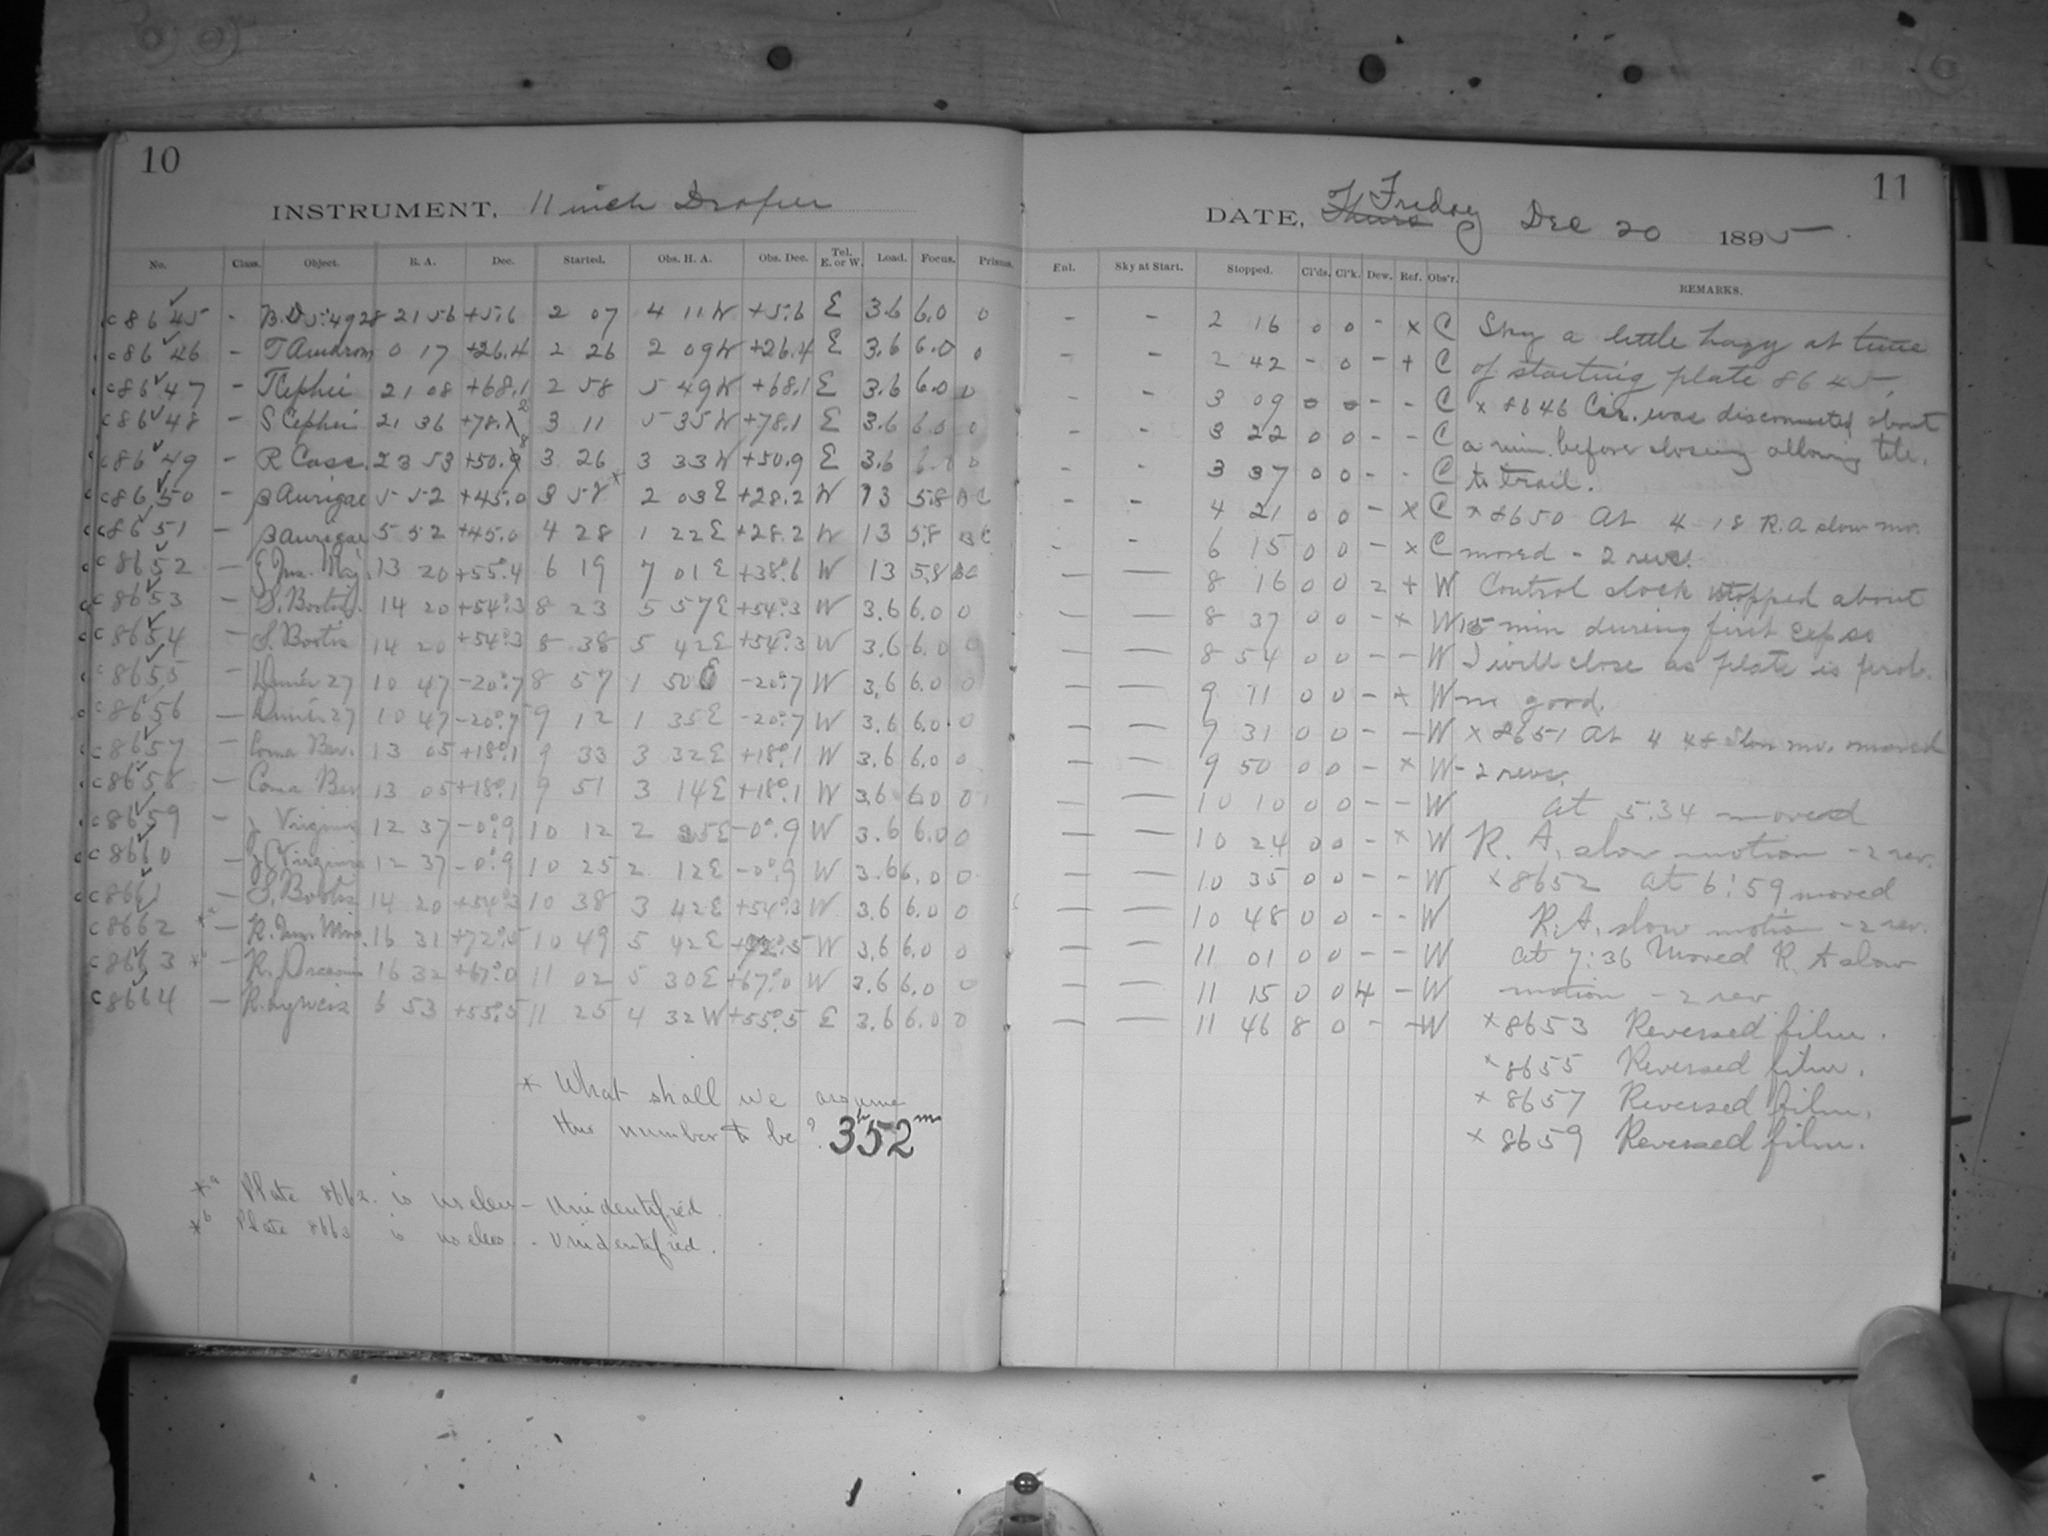 10
INSTRUMENT, 11 inch Draper
No. Class. Object. R. A. Dec. Started. Obs. H. A. Obs. Dec. Tel. E. or W. Load. Focus. Prisms.
c8645 - B.D 5°.4928 21 56 +5.6 2 07 4 11 W +5.6 E 3.6 6.0 0
c8646 - T Androm 0 17 +26.4 2 26 2 09 W +26.4 E 3.6 6.0 0
c8647 - T Cephei 21 08 +68.1 2 58 5 49 W +68.1 E 3.6 6.0 0
c8648 - S Cephei 21 36 +78.1 2 3 11 5 35 W +78.1 E 3.6 6.0 0
c8649 - R Cass. 23 53 +50.9 8 3 26 3 33 W +50.9 E 3.6 6.0 0
c8650 - β Aurigae 5 52 +45.0 3 58 * 2 03 E +28.2 W 13 5.8 BC
c8651 - β Aurigae 5 52 +45.0 4 28 1 22 E +28.2 W 13 5.8 BC
c8652 - ζ Urs. Maj. 13 20 +55°.4 6 19 7 01 E +38°.6 W 13 5.8 BC
c8653 - S. Bootis. 14 20 +54°.3 8 23 5 57 E +54°.3 W 3.6 6.0 0
c8654 - S. Bootis 14 20 +54°.3 8 38 5 42 E +54°.3 W 3.6 6.0 0
c8655 - Dunér 27 10 47 -20°.7 8 57 1 50 E -20°.7 W 3.6 6.0 0
c8656 - Dunér 27 10 47 -20°.7 9 12 1 35 E -20°.7 W 3.6 6.0 0
c8657 - Coma Ber. 13 05 +18°.1 9 33 3 32 E +18°.1 W 3.6 6.0 0
c8658 - Coma Ber 13 05 +18°.1 9 51 3 14 E +18°.1 W 3.6 6.0 0
c8659 - γ Virginis 12 37 -0°.9 10 12 2 25 E -0°.9 W 3.6 6.0 0
c8660 - γ Virginis 12 37 -0°.9 10 25 2 12 E -0°.9 W 3.6 6.0 0
c8661 - S. Bootis 14 20 +54°.3 10 38 3 42 E +54°.3 W 3.6 6.0 0
c8662 *a - R. Urs. Min. 16 31 +72°.5 10 49 5 42 E +72°.5 W 3.6 6.0 0
c8663 *b - R. Draconis 16 32 +67°.0 11 02 5 30 E +67°.0 W 3.6 6.0 0
c8664 - R. Lyncis 6 53 +55°.5 11 25 4 32 W +55°.5 E 3.6 6.0 0
* What shall we assume
this number to be? 3h 52m
*a Plate 8662 is useless - Unidentified.
*b Plate 8663 is useless - Unidentified.
11
DATE, Thurs Friday Dec 20 1895
Enl. Sky at Start. Stopped. Cl'ds. Cl'k. Dew. Ref. Obs'r. REMARKS.
- - 2 16 0 0 - x C Sky a little hazy at time
- - 2 42 - 0 - + C of starting plate 8645.
- 3 09 0 0 - - C x 8646 Cir. was disconnected about
- - 3 22 0 0 - - C a min. before closing allowing tele.
- - 3 37 0 0 - - C to trail.
- - 4 21 0 0 - x C x 8650 At 4 18 R.A slow mo.
- - 6 15 0 0 - x C moved - 2 revs.
- - 8 16 0 0 2 + W Control clock stopped about
- - 8 37 0 0 - x W 15 min during first exp. so
- - 8 54 0 0 - - W I will close as plate is prob.
- - 9 11 0 0 - x W no good.
- - 9 31 0 0 - - W x 8651 At 4 48 slow mo. moved
- - 9 50 0 0 - x W - 2 revs.
- - 10 10 0 0 - - W At 5:34 moved
- - 10 24 0 0 - x W R. A. slow motion - 2 rev.
- - 10 35 0 0 - - W x 8652 at 6:59 moved
- - 10 48 0 0 - - W R. A. slow motion - 2 rev.
- - 11 01 0 0 - - W at 7:36 Moved R. A slow
- - 11 15 0 0 4 - W motion - 2 rev
- - 11 46 8 0 - - W x 8653 Reversed film.
x 8655 Reversed film.
x 8657 Reversed film.
x 8659 Reversed film.